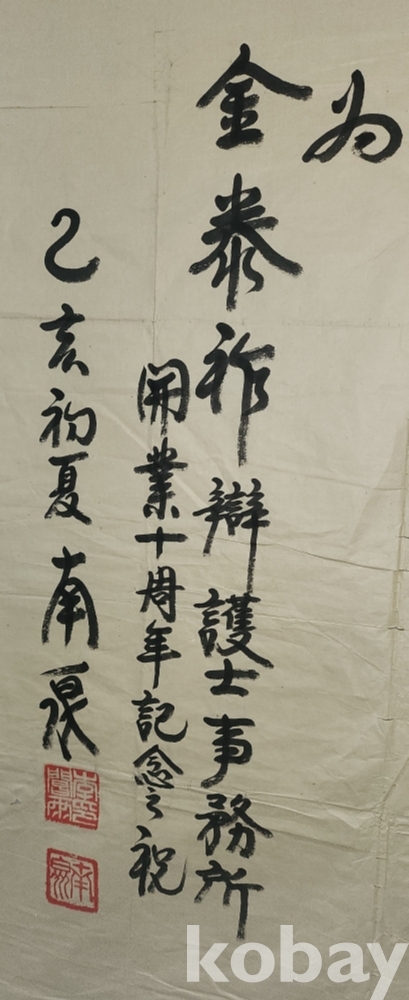 为
金泰祚辯護士事務所
開業十周年記念之祝
乙亥初夏 南泉
kobay